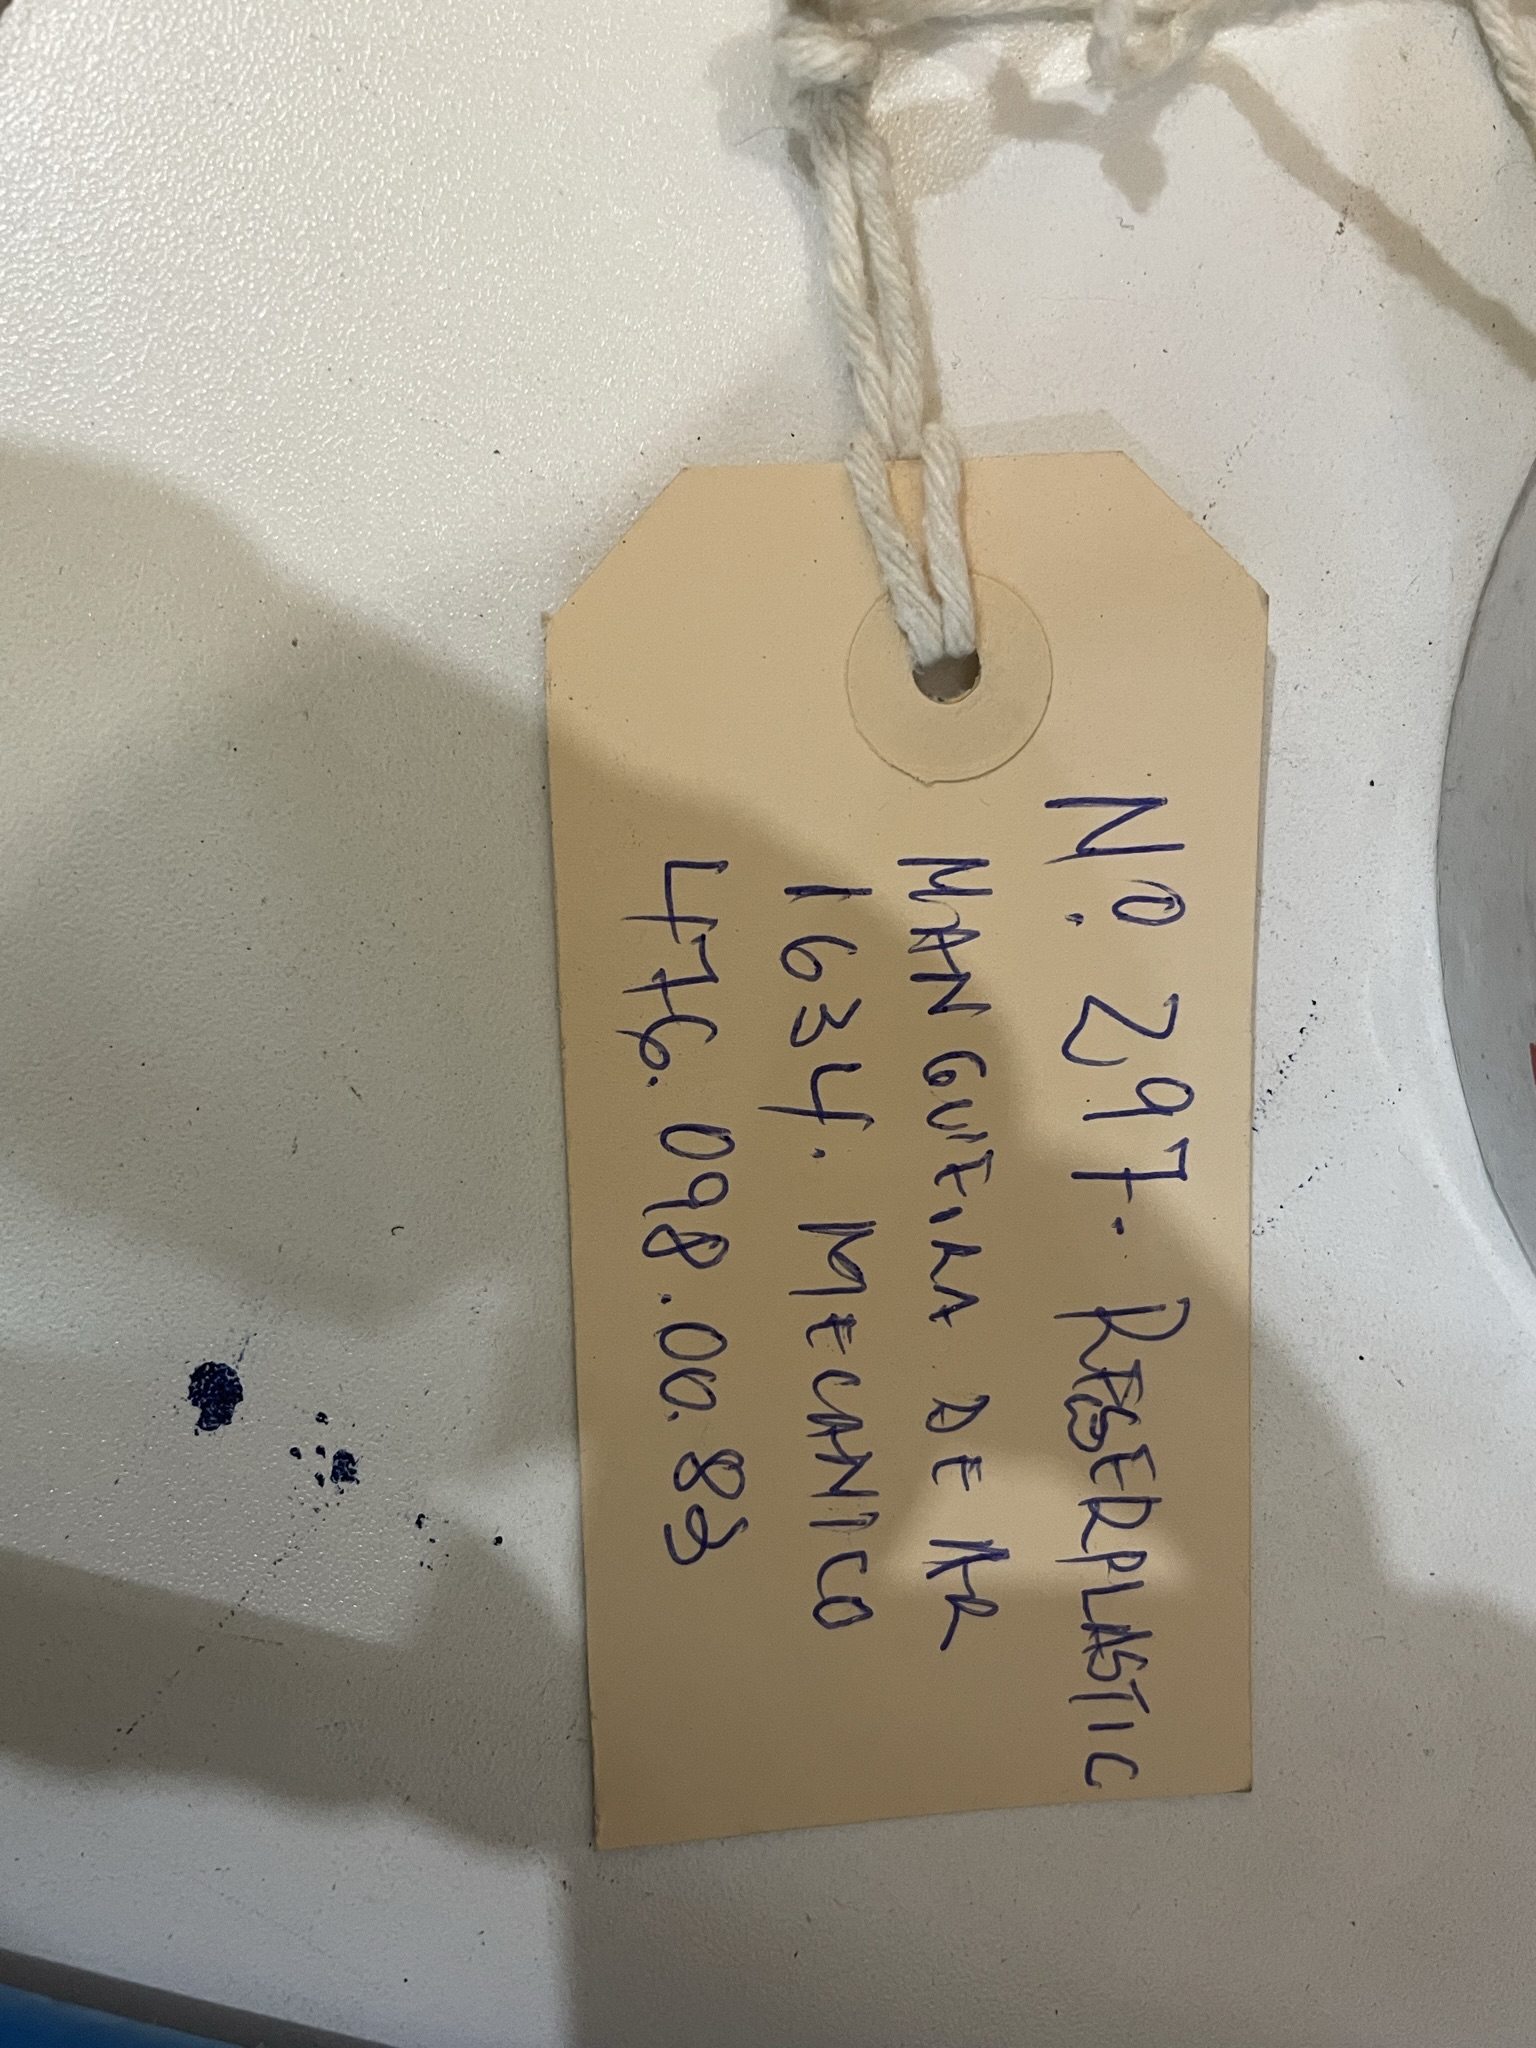 No. 297. RESERPLASTIC
MANGUEIRA DE AR
1634. MECANICO
476.098.00.83